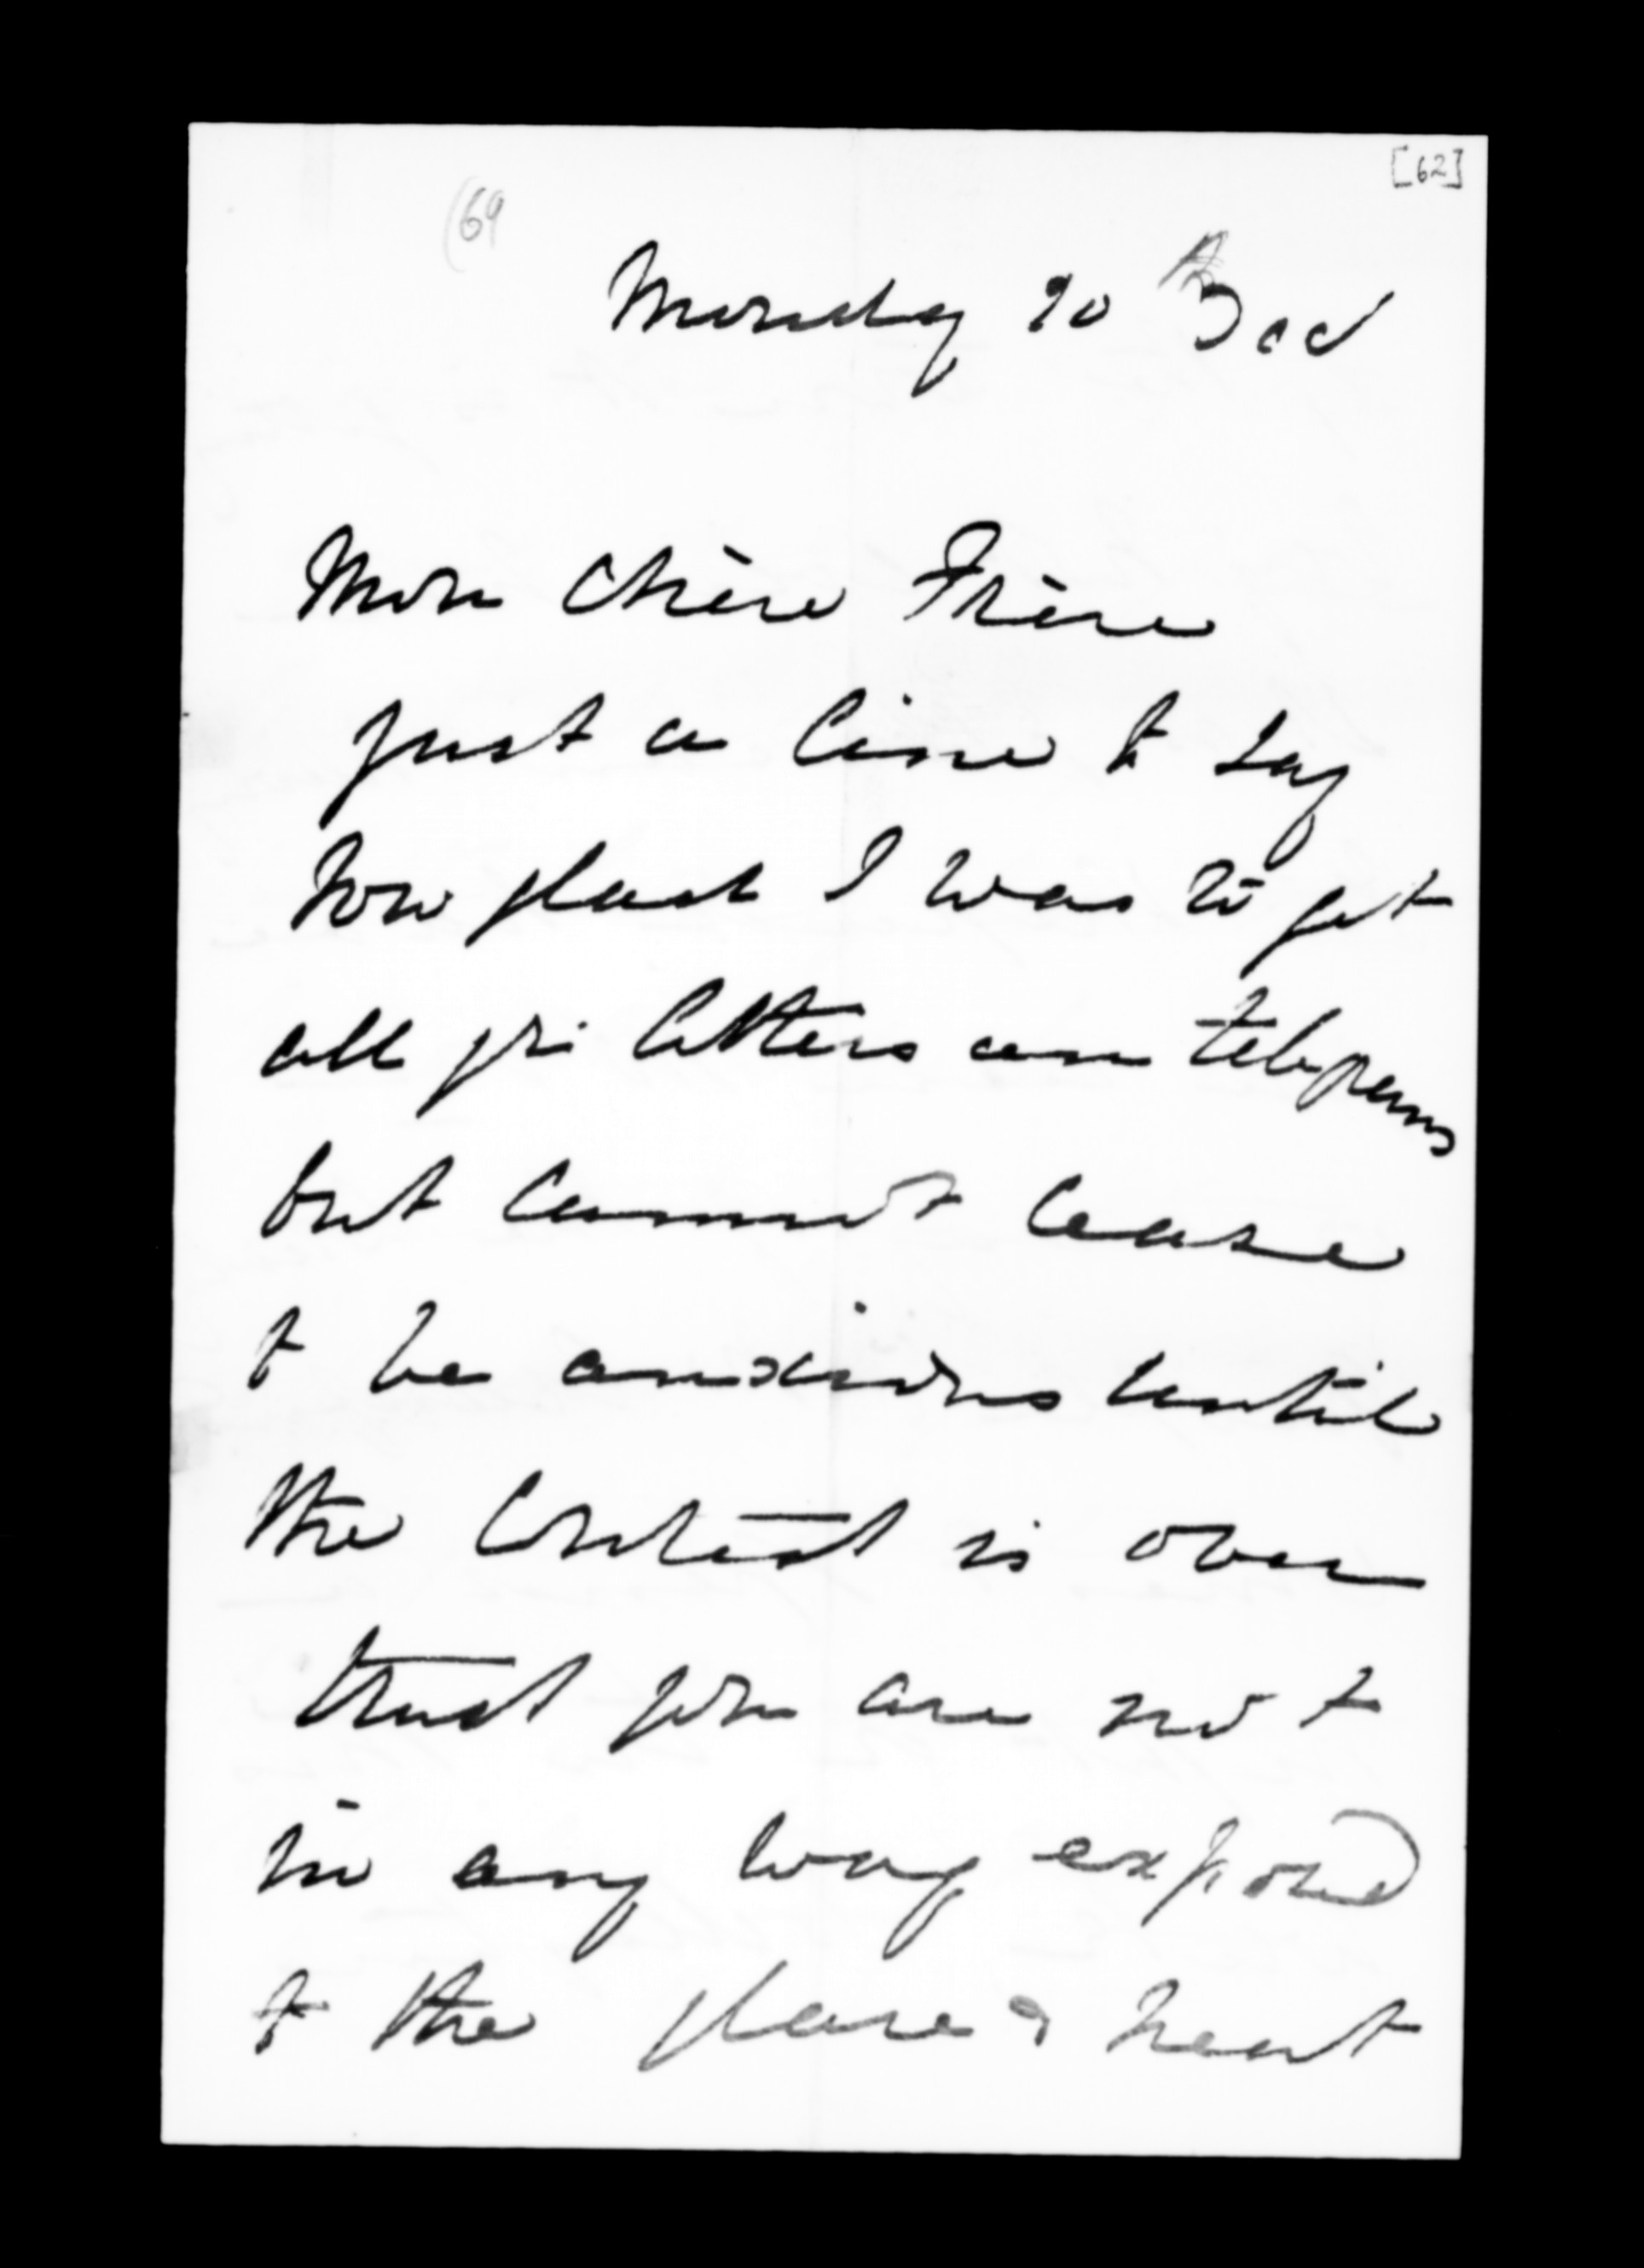 [62]
(69
Monday 20
Mon Chère Frère
just a line to say
how glad I was to get
all yr letters and telegrams
but cannot cease
to be anxious until
the contest is over
trust you are not
in any way exposed
to the glare & heat